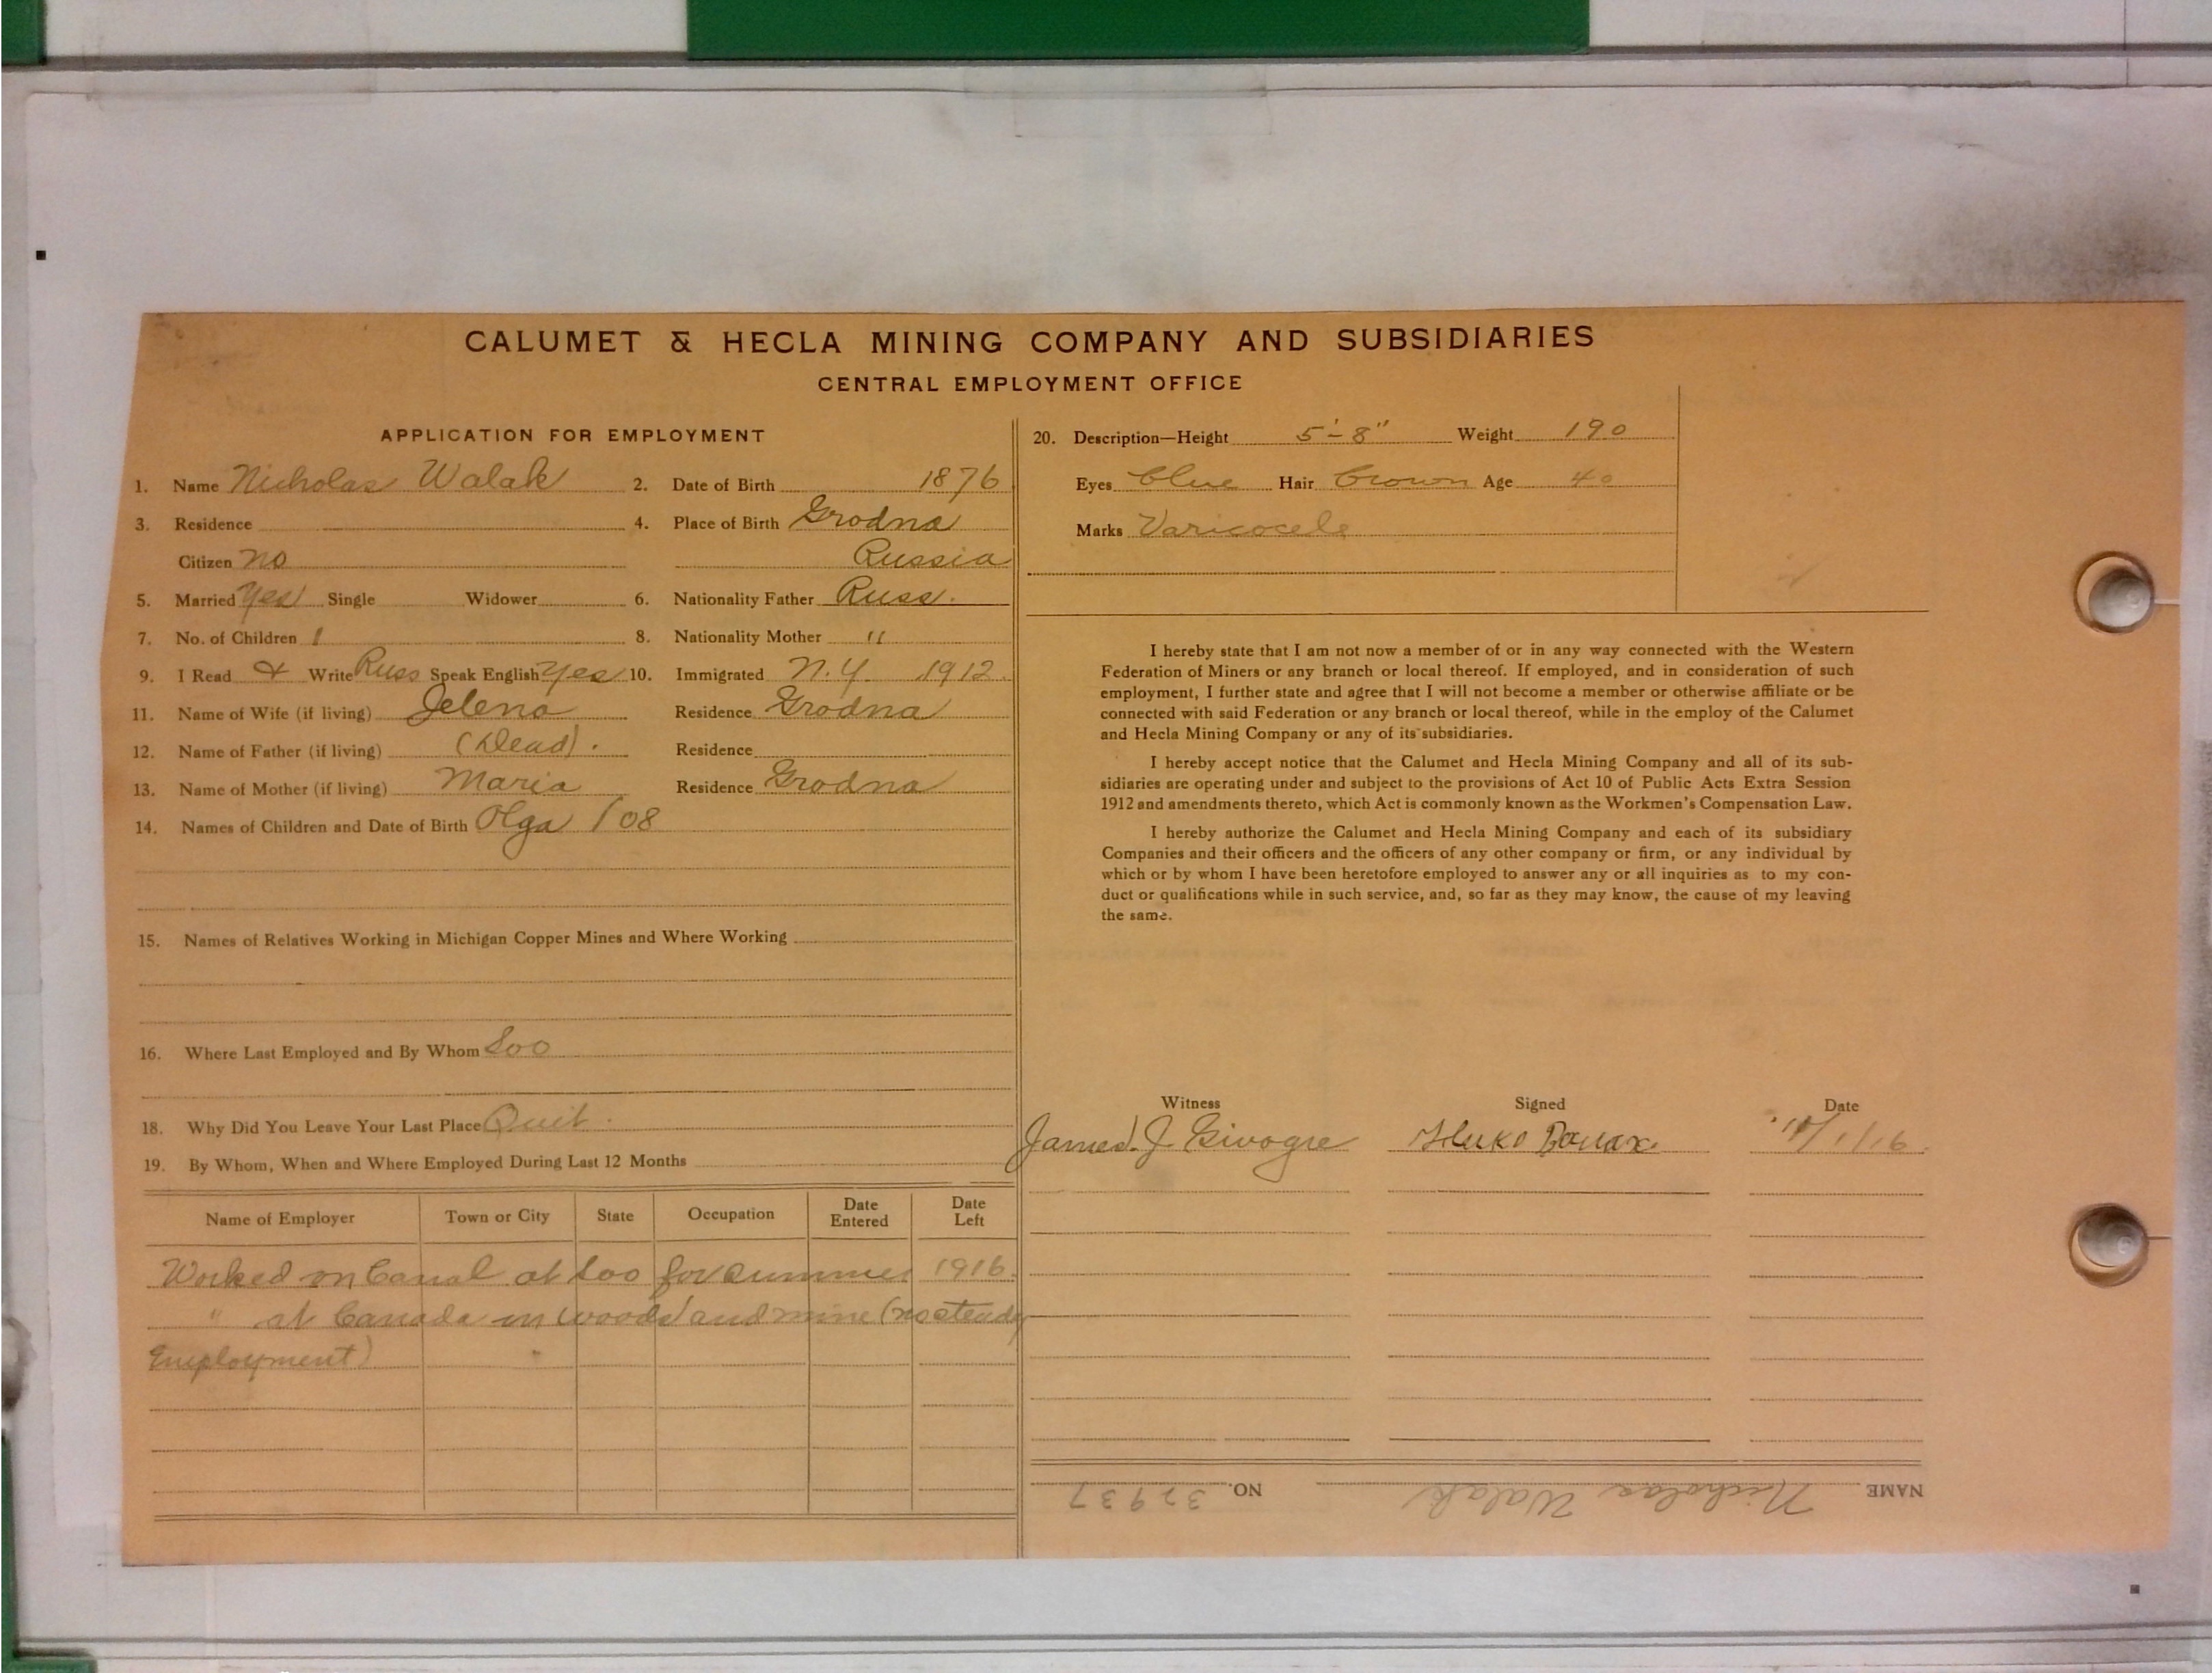 CALUMET & HECLA MINING COMPANY AND SUBSIDIARIES
CENTRAL EMPLOYMENT OFFICE
APPLICATION FOR EMPLOYMENT
1. Name Nicholas Walak 2. Date of Birth 1876
3. Residence 4. Place of Birth Grodna
Citizen no Russia
5. Married Yes Single Widower 6. Nationality Father Russ.
7. No. of Children 1 8. Nationality Mother "
9. I Read & Write Russ Speak English Yes 10. Immigrated N.Y. 1912.
11. Name of Wife (if living) Jelena Residence Grodna
12. Name of Father (if living) (Dead). Residence
13. Name of Mother (if living) Maria Residence Grodna
14. Names of Children and Date of Birth Olga /08
15. Names of Relatives Working in Michigan Copper Mines and Where Working
16. Where Last Employed and By Whom Soo
18. Why Did You Leave Your Last Place Quit.
19. By Whom, When and Where Employed During Last 12 Months
Name of Employer Town or City State Occupation Date Entered Date Left
Worked on Canal at Soo for summer 1916.
" at Canada in woods and mine (no steady
Employment)
20. Description—Height 5'-8" Weight 190
Eyes Blue Hair Brown Age 40
Marks Varicocele
I hereby state that I am not now a member of or in any way connected with the Western
Federation of Miners or any branch or local thereof. If employed, and in consideration of such
employment, I further state and agree that I will not become a member or otherwise affiliate or be
connected with said Federation or any branch or local thereof, while in the employ of the Calumet
and Hecla Mining Company or any of its subsidiaries.
I hereby accept notice that the Calumet and Hecla Mining Company and all of its sub-
sidiaries are operating under and subject to the provisions of Act 10 of Public Acts Extra Session
1912 and amendments thereto, which Act is commonly known as the Workmen's Compensation Law.
I hereby authorize the Calumet and Hecla Mining Company and each of its subsidiary
Companies and their officers and the officers of any other company or firm, or any individual by
which or by whom I have been heretofore employed to answer any or all inquiries as to my con-
duct or qualifications while in such service, and, so far as they may know, the cause of my leaving
the same.
Witness Signed Date
James J. 10/1/16
NAME Nicholas Walak NO. 32937